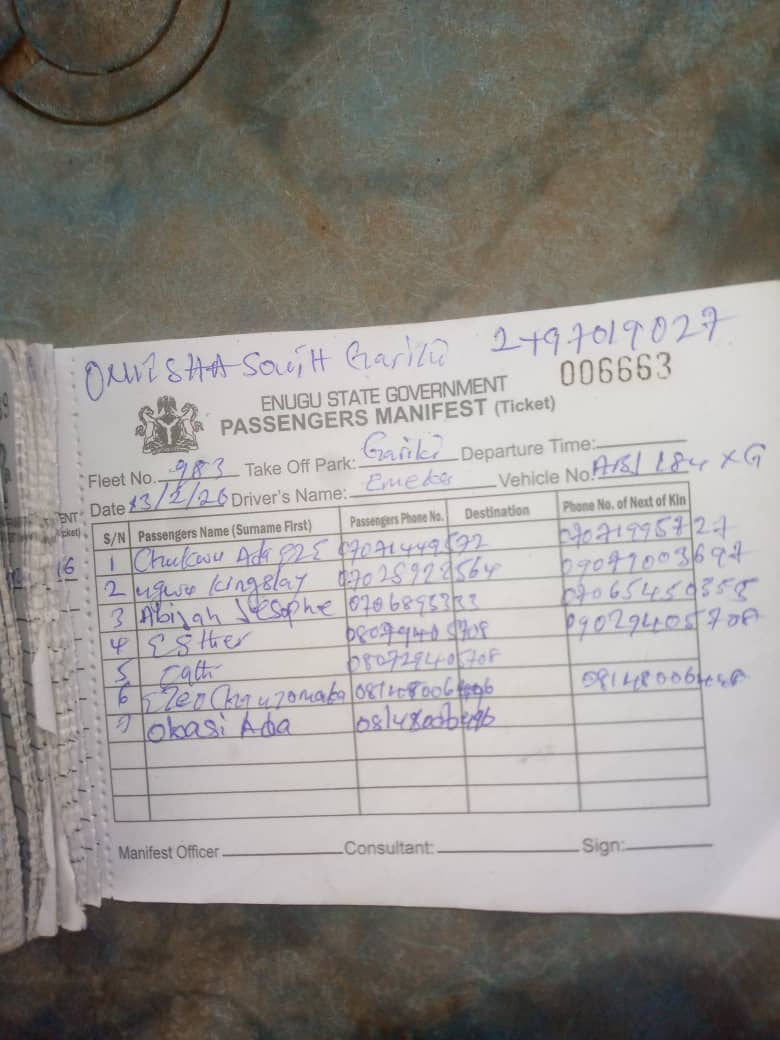 ONITSHA South Gariki 2+97019027
006663
ENUGU STATE GOVERNMENT
PASSENGERS MANIFEST (Ticket)
Fleet No. 983 Take Off Park: Gariki Departure Time:
Date 13/2/26 Driver's Name: Emeka Vehicle No. 184 XG
S/N Passengers Name (Surname First) Passengers Phone No. Destination Phone No. of Next of Kin
1 Chukwu 07071449572 07071995727
2 ugwu kingslay 07025928564 09079003697
3 Abijah Jesophe 0706895333 07065450358
4 Esther 08079405708 09029405708
5 080729405708
6 0814800 08148006
7 Obasi Ada 081480
Manifest Officer Consultant: Sign:
16